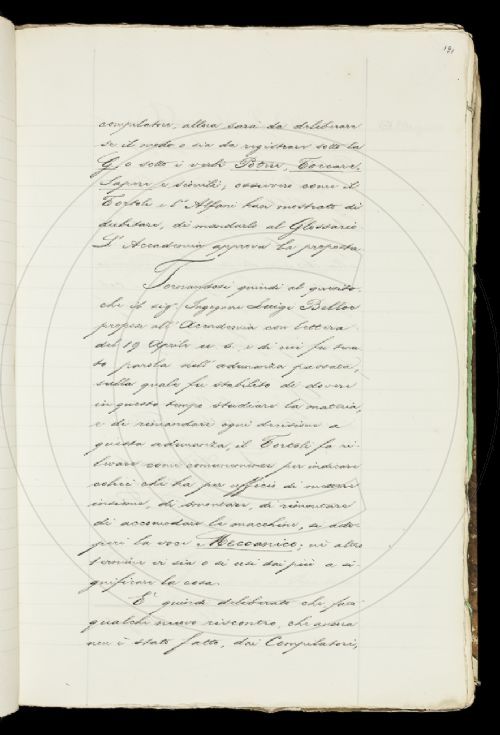 191
compilatore, allora sarà da deliberare
se il modo o sia da registrare sotto la
G, o sotto i verbi Potere, Toccare,
Sapere e simili; ovvero come il
Tortoli e l'Alfani han mostrato di
dubitare, di mandarlo al Glossario
L'Accademia approva la proposta.
Tornandosi quindi al quesito
che il sig.r Ingegnere Luigi Belloc
propose all'Accademia con lettera
del 19 Aprile u. s. e di cui fu tenu
to parola nell'adunanza passata,
sulla quale fu stabilito di dovere
in questo tempo studiare la materia,
e di rimandare ogni decisione a
questa adunanza, il Tortoli fa ri
levare come comunemente per indicare
colui che ha per ufficio di mettere
insieme, di smontare, di rimontare
di accomodare le macchine, si ado
peri la voce Meccanico; nè altro
termine vi sia o si usi dai più a si
gnificare la cosa.
È quindi deliberato che fatto
qualche nuovo riscontro, che ancora
non è stato fatto, dai Compilatori,